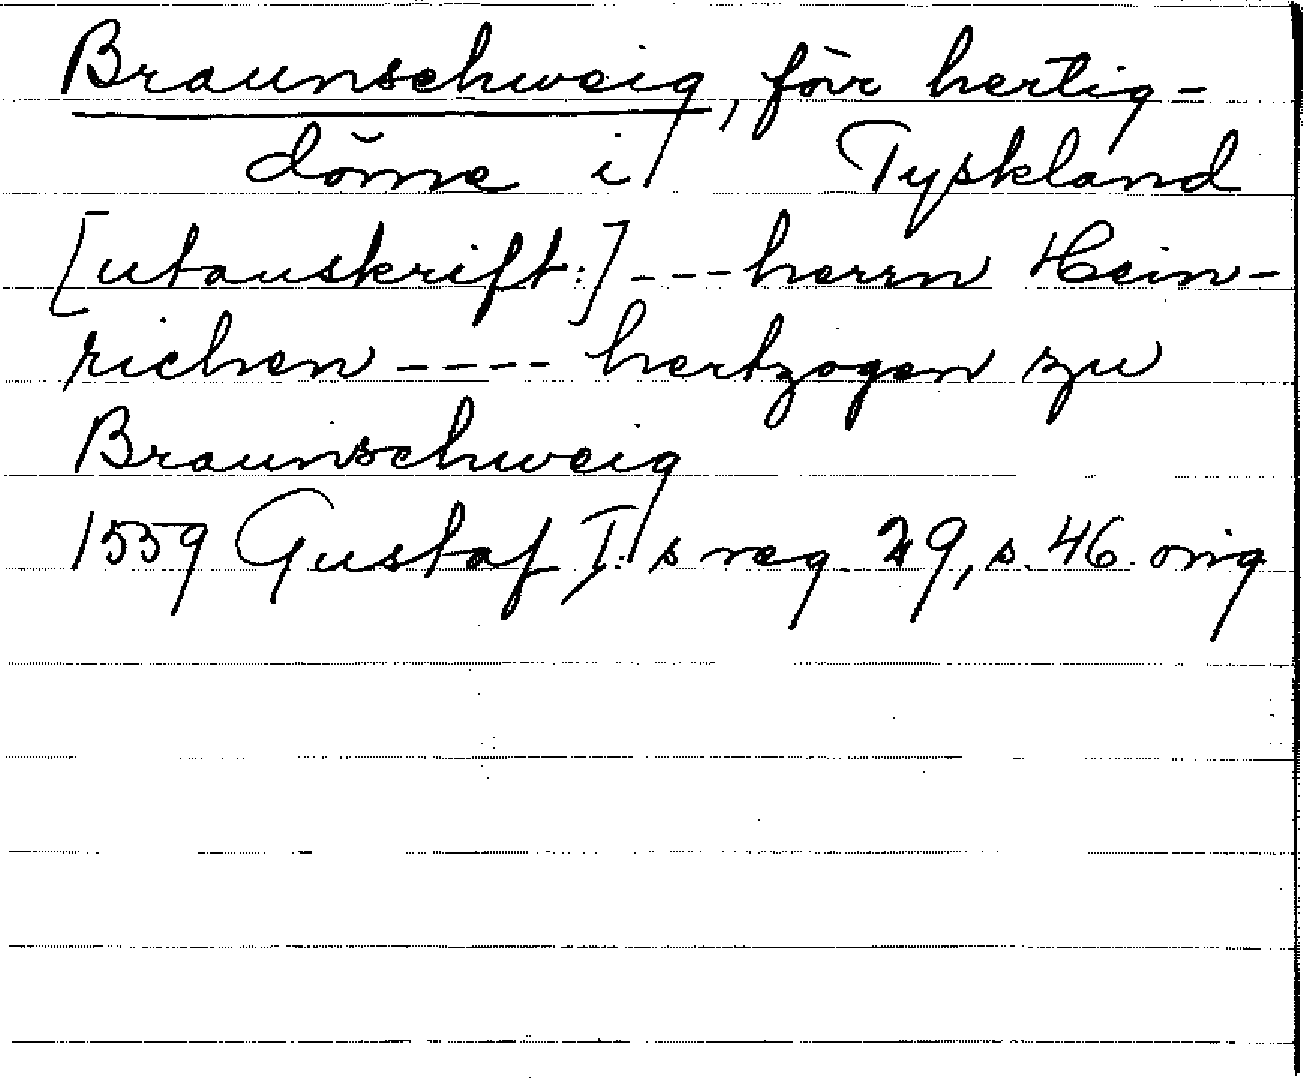 Braunschweig, förr hertig-
döme i Tyskland
[utanskrift:] --- herrn Hein-
richen ---- hertzogen zu
Braunschweig
1559 Gustaf I:s reg. 29, s. 46. orig